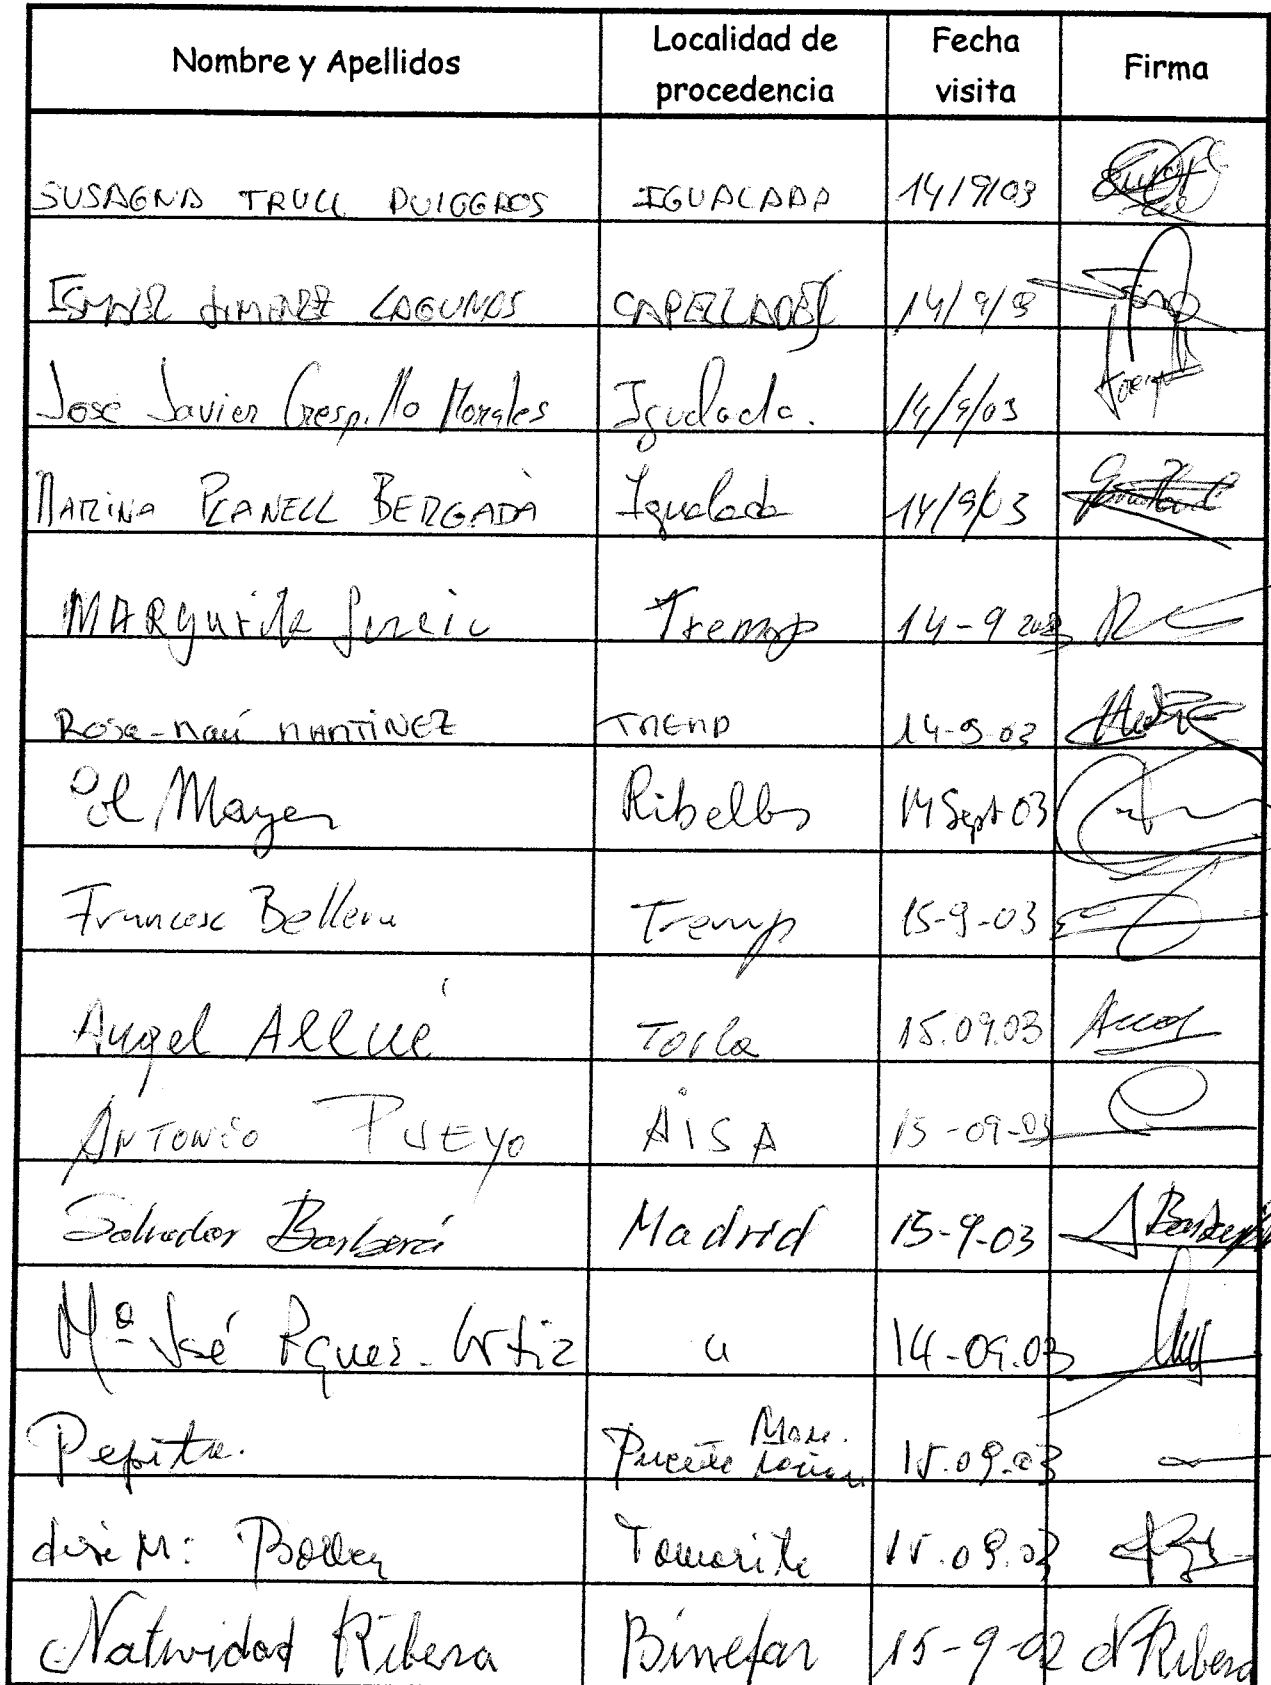 Nombre y Apellidos Localidad de procedencia Fecha visita Firma
SUSAGNA TRULL PUIGGROS IGUALADA 14/9/03
ISMAEL JIMENEZ LAGUNAS CAPELLADES 14/9/3
José Javier Crespillo Morales Igualada. 14/9/03
MARINA PLANELL BERGADÀ Igualada 14/9/03
MARgurite Tremp 14-9 2003
Rosa-Mari MARTINEZ TREMP 14-9-03
Pol Mayer Ribelles 14 Sept 03
Francesc Bellera Tremp 15-9-03
Angel Allué Torla 15.09.03
ANTONIO PUEYO AISA 15-09-03
Salvador Barberá Madrid 15-9-03
Mª José Ortiz 14-09.03
Pepita. Puente 15.09.03
José Mª Tamarite 15.09.03
Natividad Ribera Binefar 15-9-02 N Ribera